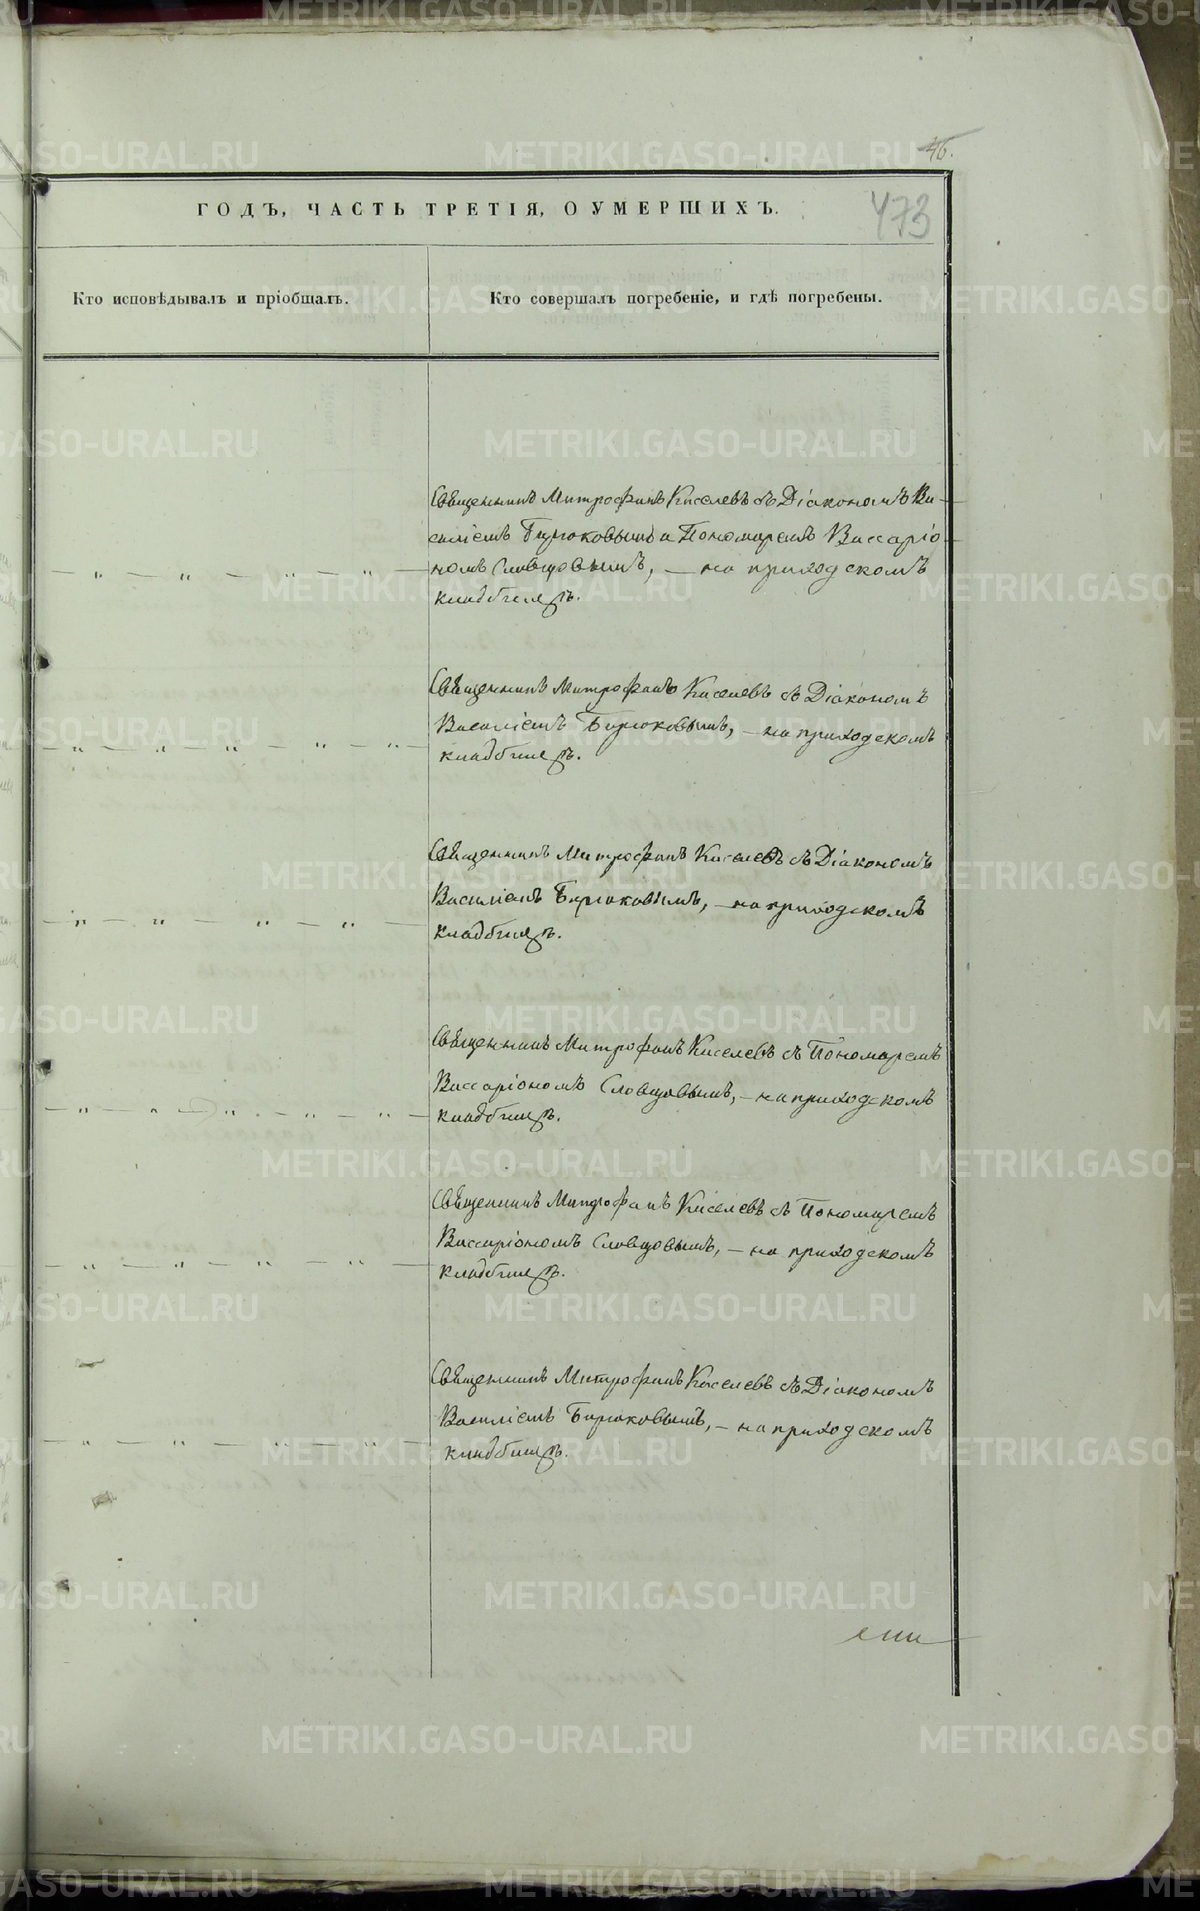 46.
ГОДЪ, ЧАСТЬ ТРЕТІЯ, О УМЕРШИХЪ.
473
Кто исповѣдывалъ и пріобщалъ.
Кто совершалъ погребеніе, и гдѣ погребены.
Священникъ Митрофанъ Киселевъ съ Діакономъ Ва-
силіемъ Бирюковымъ и Пономаремъ Виссаріо-
номъ Словцовымъ, — на приходскомъ
кладбищѣ.
Священникъ Митрофанъ Киселевъ съ Діакономъ
Василіемъ Бирюковымъ, — на приходскомъ
кладбищѣ.
Священникъ Митрофанъ Киселевъ съ Діакономъ
Василіемъ Бирюковымъ, — на приходскомъ
кладбищѣ.
Священникъ Митрофанъ Киселевъ съ Пономаремъ
Виссаріономъ Словцовымъ, — на приходскомъ
кладбищѣ.
Священникъ Митрофанъ Киселевъ съ Пономаремъ
Виссаріономъ Словцовымъ, — на приходскомъ
кладбищѣ.
Священникъ Митрофанъ Киселевъ съ Діакономъ
Василіемъ Бирюковымъ, — на приходскомъ
кладбищѣ.
METRIKI.GASO-URAL.RU